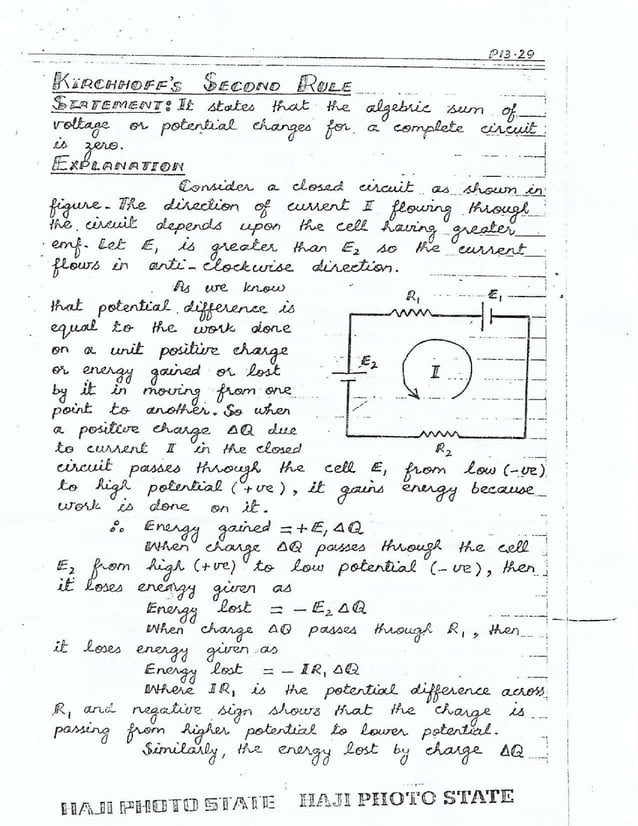 P13.29
KIRCHHOFF'S SECOND RULE
STATEMENT: It states that the algebric sum of
voltage or potential changes for a complete circuit
is zero.
EXPLANATION
Consider a closed circuit as shown in
figure. The direction of current I flowing through
the circuit depends upon the cell having greater
emf. Let E₁ is greater than E₂ so the current
flows in anti-clockwise direction.
As we know
that potential difference is
equal to the work done
on a unit positive charge
or energy gained or lost
by it in moving from one
point to another. So when
a positive charge ΔQ due
to current I in the closed
R₁
E₁
E₂
I
R₂
circuit passes through the cell E₁ from low (-ve)
to high potential (+ve), it gains energy because
work is done on it.
∴ Energy gained = +E₁ΔQ
When charge ΔQ passes through the cell
E₂ from high (+ve) to low potential (-ve), then
it loses energy given as
Energy lost = - E₂ΔQ
When charge ΔQ passes through R₁, then
it loses energy given as
Energy lost = - IR₁ΔQ
Where IR₁ is the potential difference across
R₁ and negative sign shows that the charge is
passing from higher potential to lower potential.
Similarly, the energy lost by charge ΔQ
HAJI PHOTO STATE HAJI PHOTO STATE